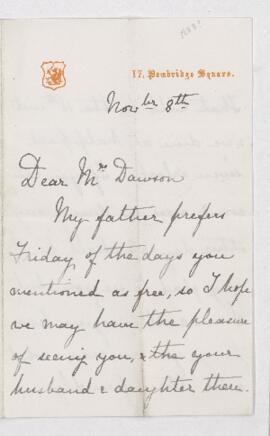 17, Pembridge Square.
Novbr 8th
Dear Mrs Dawson
My father prefers
Friday, of the days you
mentioned as free, so I hope
we may have the pleasure
of seeing you, & the your
husband & daughter then.